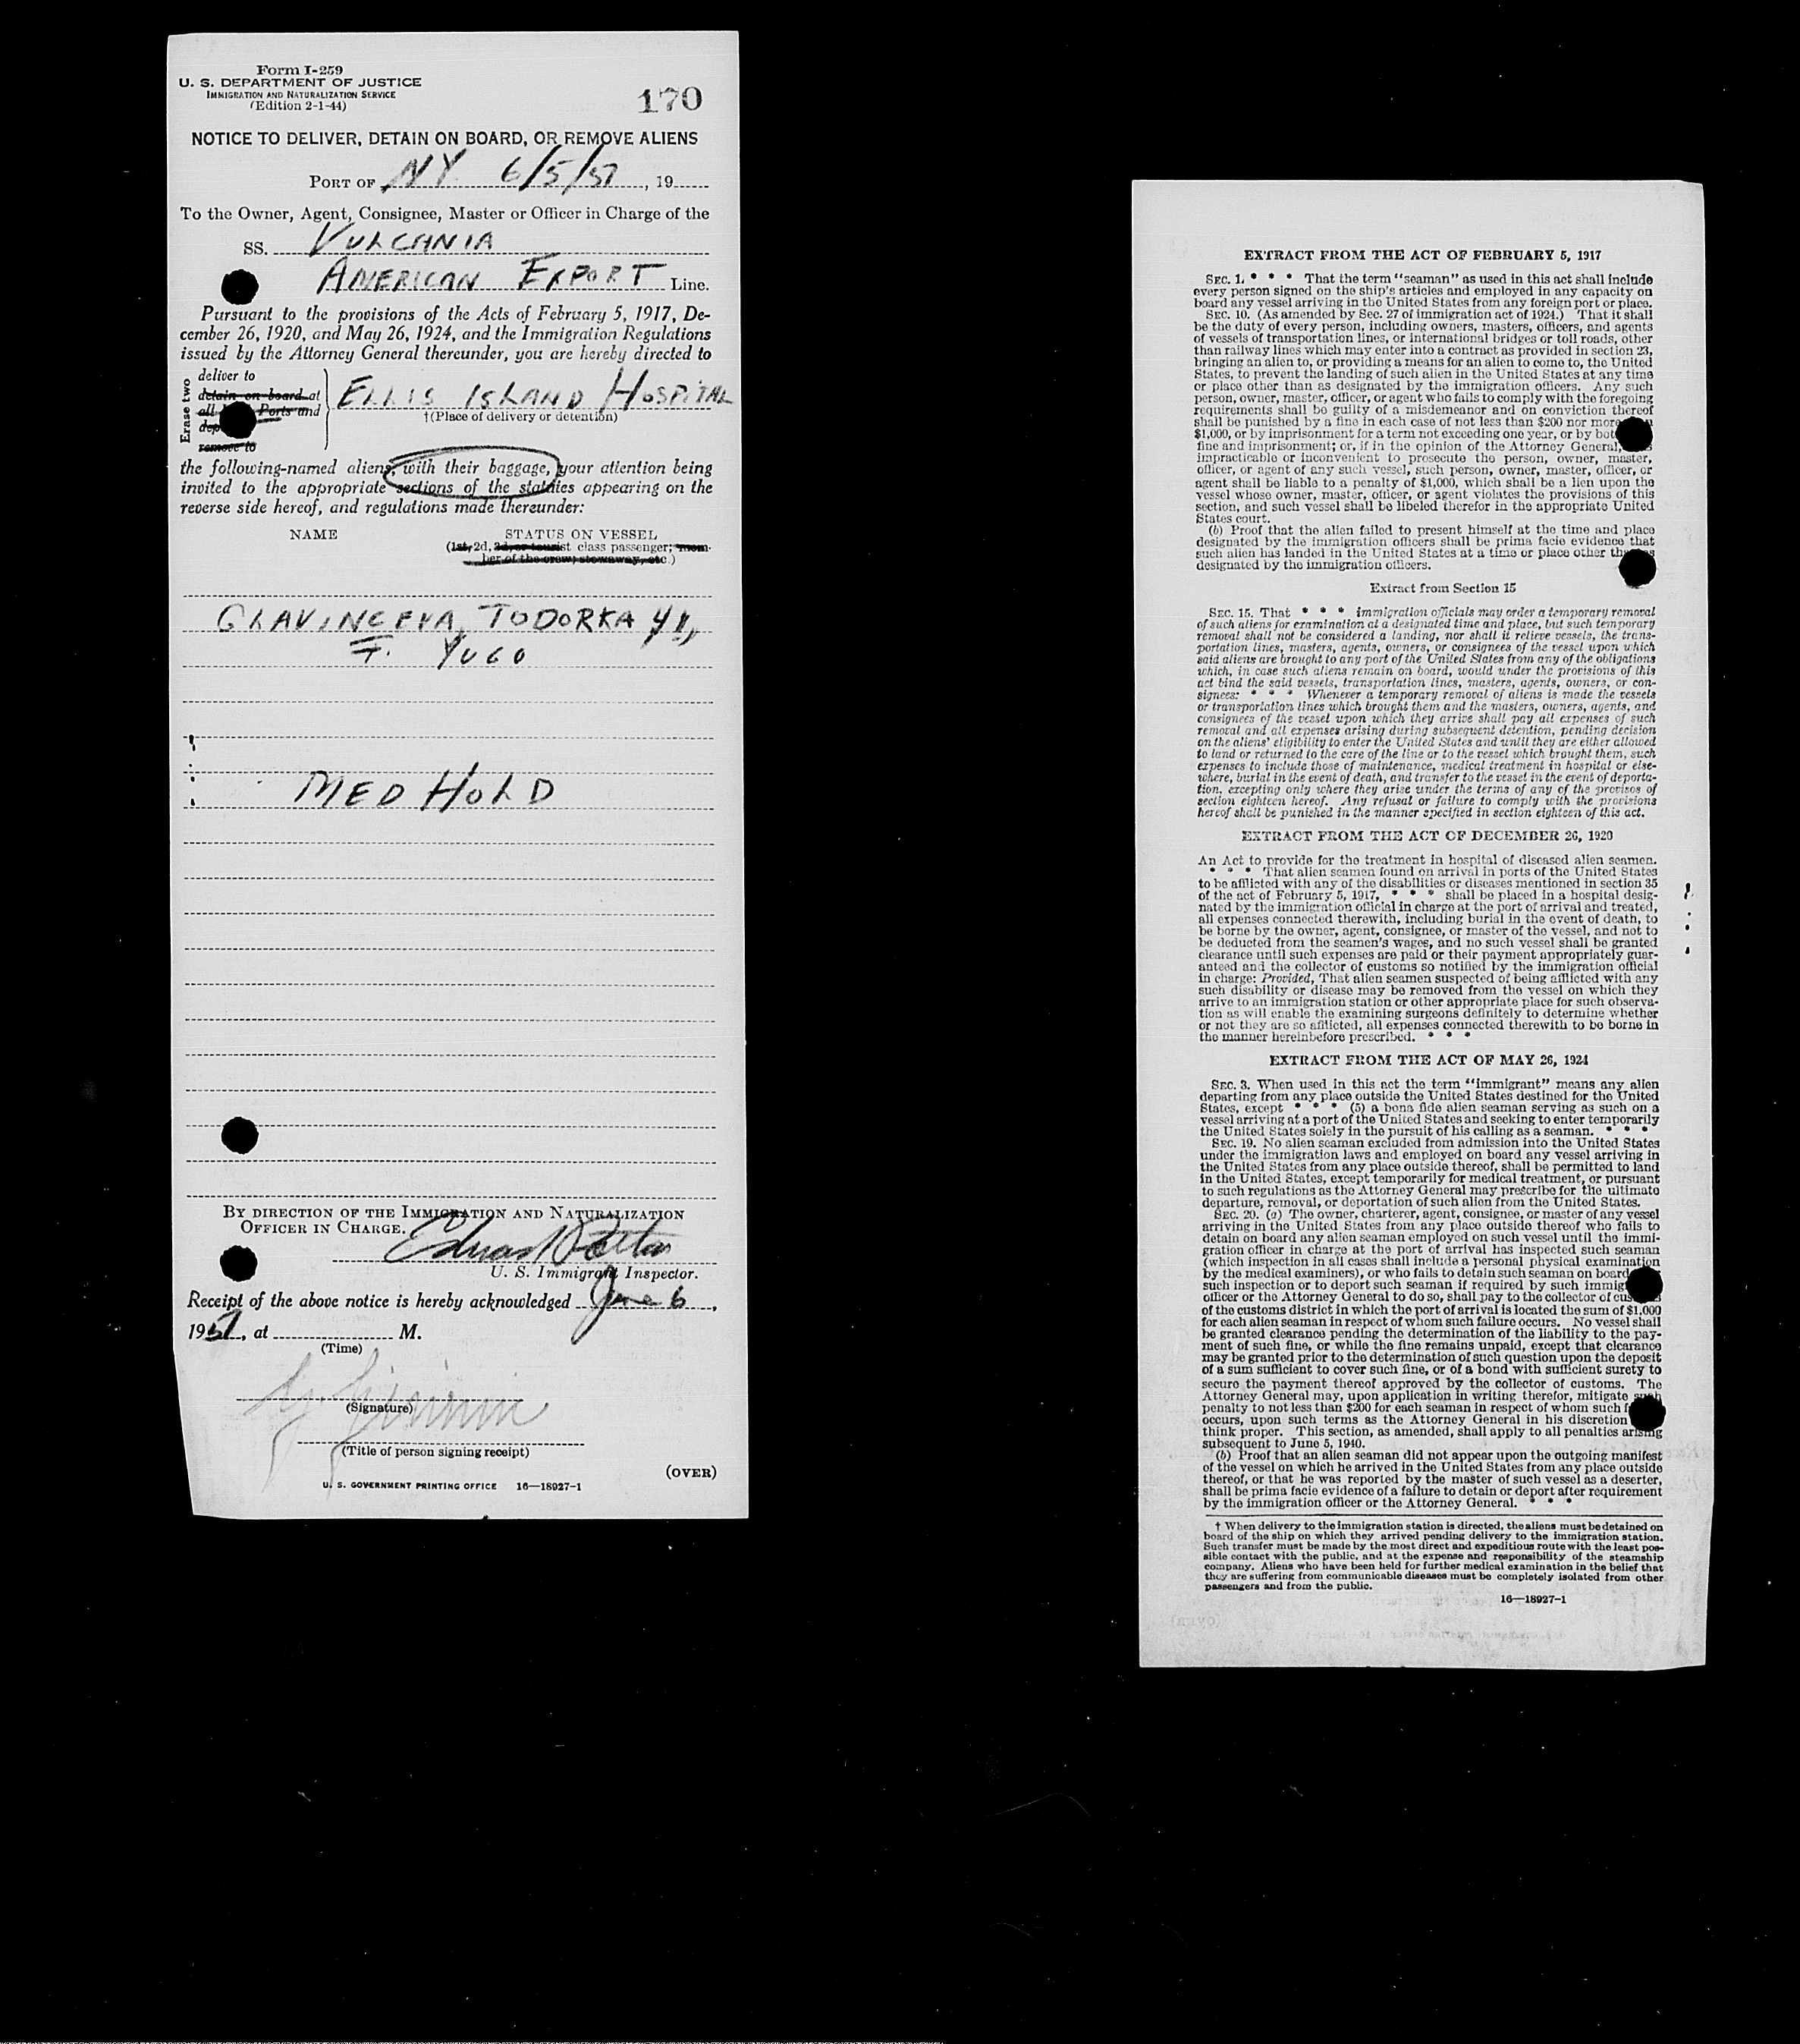 Form I-259
U. S. DEPARTMENT OF JUSTICE
IMMIGRATION AND NATURALIZATION SERVICE
(Edition 2-1-44)
170
NOTICE TO DELIVER, DETAIN ON BOARD, OR REMOVE ALIENS
PORT OF NY 6/5/51, 19
To the Owner, Agent, Consignee, Master or Officer in Charge of the
SS. VULCANIA
AMERICAN EXPORT Line.
Pursuant to the provisions of the Acts of February 5, 1917, De-
cember 26, 1920, and May 26, 1924, and the Immigration Regulations
issued by the Attorney General thereunder, you are hereby directed to
Erase two
deliver to
detain on board at
all Ports and
remove to
ELLIS ISLAND HOSPITAL
†(Place of delivery or detention)
the following-named aliens, with their baggage, your attention being
invited to the appropriate sections of the statutes appearing on the
reverse side hereof, and regulations made thereunder:
NAME STATUS ON VESSEL
(1st, 2d, 3d, or tourist class passenger; mem-
ber of the crew; stowaway, etc.)
GLAVINCEVA, TODORKA
F. YUGO
MED HOLD
BY DIRECTION OF THE IMMIGRATION AND NATURALIZATION
OFFICER IN CHARGE.
U. S. Immigrant Inspector.
Receipt of the above notice is hereby acknowledged June 6,
1951, at M.
(Time)
(Signature)
(Title of person signing receipt)
(OVER)
U. S. GOVERNMENT PRINTING OFFICE 16—18927-1
EXTRACT FROM THE ACT OF FEBRUARY 5, 1917
SEC. 1. * * * That the term "seaman" as used in this act shall include
every person signed on the ship's articles and employed in any capacity on
board any vessel arriving in the United States from any foreign port or place.
SEC. 10. (As amended by Sec. 27 of immigration act of 1924.) That it shall
be the duty of every person, including owners, masters, officers, and agents
of vessels of transportation lines, or international bridges or toll roads, other
than railway lines which may enter into a contract as provided in section 23,
bringing an alien to, or providing a means for an alien to come to, the United
States, to prevent the landing of such alien in the United States at any time
or place other than as designated by the immigration officers. Any such
person, owner, master, officer, or agent who fails to comply with the foregoing
requirements shall be guilty of a misdemeanor and on conviction thereof
shall be punished by a fine in each case of not less than $200 nor more
$1,000, or by imprisonment for a term not exceeding one year, or by
fine and imprisonment; or, if in the opinion of the Attorney General,
impracticable or inconvenient to prosecute the person, owner, master,
officer, or agent of any such vessel, such person, owner, master, officer, or
agent shall be liable to a penalty of $1,000, which shall be a lien upon the
vessel whose owner, master, officer, or agent violates the provisions of this
section, and such vessel shall be libeled therefor in the appropriate United
States court.
(b) Proof that the alien failed to present himself at the time and place
designated by the immigration officers shall be prima facie evidence that
such alien has landed in the United States at a time or place other
designated by the immigration officers.
Extract from Section 15
SEC. 15. That * * * immigration officials may order a temporary removal
of such aliens for examination at a designated time and place, but such temporary
removal shall not be considered a landing, nor shall it relieve vessels, the trans-
portation lines, masters, agents, owners, or consignees of the vessel upon which
said aliens are brought to any port of the United States from any of the obligations
which, in case such aliens remain on board, would under the provisions of this
act bind the said vessels, transportation lines, masters, agents, owners, or con-
signees: * * * Whenever a temporary removal of aliens is made the vessels
or transportation lines which brought them and the masters, owners, agents, and
consignees of the vessel upon which they arrive shall pay all expenses of such
removal and all expenses arising during subsequent detention, pending decision
on the aliens' eligibility to enter the United States and until they are either allowed
to land or returned to the care of the line or to the vessel which brought them, such
expenses to include those of maintenance, medical treatment in hospital or else-
where, burial in the event of death, and transfer to the vessel in the event of deporta-
tion, excepting only where they arise under the terms of any of the provisos of
section eighteen hereof. Any refusal or failure to comply with the provisions
hereof shall be punished in the manner specified in section eighteen of this act.
EXTRACT FROM THE ACT OF DECEMBER 26, 1920
An Act to provide for the treatment in hospital of diseased alien seamen.
* * * That alien seamen found on arrival in ports of the United States
to be afflicted with any of the disabilities or diseases mentioned in section 35
of the act of February 5, 1917, * * * shall be placed in a hospital desig-
nated by the immigration official in charge at the port of arrival and treated,
all expenses connected therewith, including burial in the event of death, to
be borne by the owner, agent, consignee, or master of the vessel, and not to
be deducted from the seamen's wages, and no such vessel shall be granted
clearance until such expenses are paid or their payment appropriately guar-
anteed and the collector of customs so notified by the immigration official
in charge: Provided, That alien seamen suspected of being afflicted with any
such disability or disease may be removed from the vessel on which they
arrive to an immigration station or other appropriate place for such observa-
tion as will enable the examining surgeons definitely to determine whether
or not they are so afflicted, all expenses connected therewith to be borne in
the manner hereinbefore prescribed. * * *
EXTRACT FROM THE ACT OF MAY 26, 1924
SEC. 3. When used in this act the term "immigrant" means any alien
departing from any place outside the United States destined for the United
States, except * * * (5) a bona fide alien seaman serving as such on a
vessel arriving at a port of the United States and seeking to enter temporarily
the United States solely in the pursuit of his calling as a seaman. * * *
SEC. 19. No alien seaman excluded from admission into the United States
under the immigration laws and employed on board any vessel arriving in
the United States from any place outside thereof, shall be permitted to land
in the United States, except temporarily for medical treatment, or pursuant
to such regulations as the Attorney General may prescribe for the ultimate
departure, removal, or deportation of such alien from the United States.
SEC. 20. (a) The owner, charterer, agent, consignee, or master of any vessel
arriving in the United States from any place outside thereof who fails to
detain on board any alien seaman employed on such vessel until the immi-
gration officer in charge at the port of arrival has inspected such seaman
(which inspection in all cases shall include a personal physical examination
by the medical examiners), or who fails to detain such seaman on board
such inspection or to deport such seaman if required by such
officer or the Attorney General to do so, shall pay to the collector of
of the customs district in which the port of arrival is located the sum of $1,000
for each alien seaman in respect of whom such failure occurs. No vessel shall
be granted clearance pending the determination of the liability to the pay-
ment of such fine, or while the fine remains unpaid, except that clearance
may be granted prior to the determination of such question upon the deposit
of a sum sufficient to cover such fine, or of a bond with sufficient surety to
secure the payment thereof approved by the collector of customs. The
Attorney General may, upon application in writing therefor, mitigate such
penalty to not less than $200 for each seaman in respect of whom such
occurs, upon such terms as the Attorney General in his discretion
think proper. This section, as amended, shall apply to all penalties arising
subsequent to June 5, 1940.
(b) Proof that an alien seaman did not appear upon the outgoing manifest
of the vessel on which he arrived in the United States from any place outside
thereof, or that he was reported by the master of such vessel as a deserter,
shall be prima facie evidence of a failure to detain or deport after requirement
by the immigration officer or the Attorney General. * * *
† When delivery to the immigration station is directed, the aliens must be detained on
board of the ship on which they arrived pending delivery to the immigration station.
Such transfer must be made by the most direct and expeditious route with the least pos-
sible contact with the public, and at the expense and responsibility of the steamship
company. Aliens who have been held for further medical examination in the belief that
they are suffering from communicable diseases must be completely isolated from other
passengers and from the public.
16—18927-1